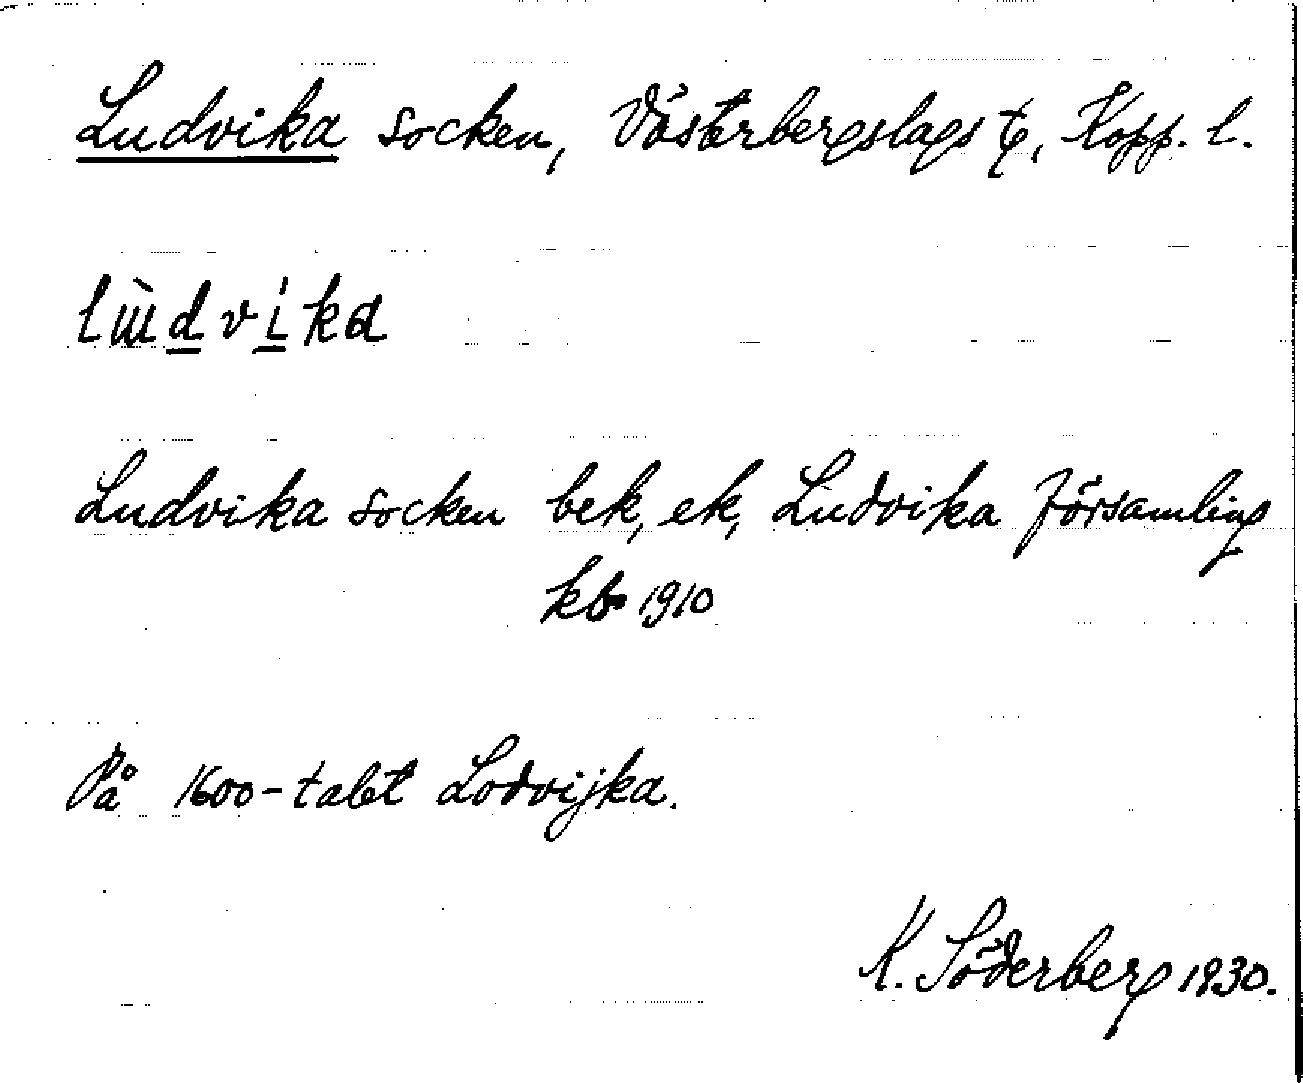 Ludvika socken, Västerbergslags t, Kopp. l.
lɯ̀dvíka
Ludvika socken bek, ek, Ludvika församling
kb 1910
På 1600-talet Lodvijka.
K. Söderberg 1930.